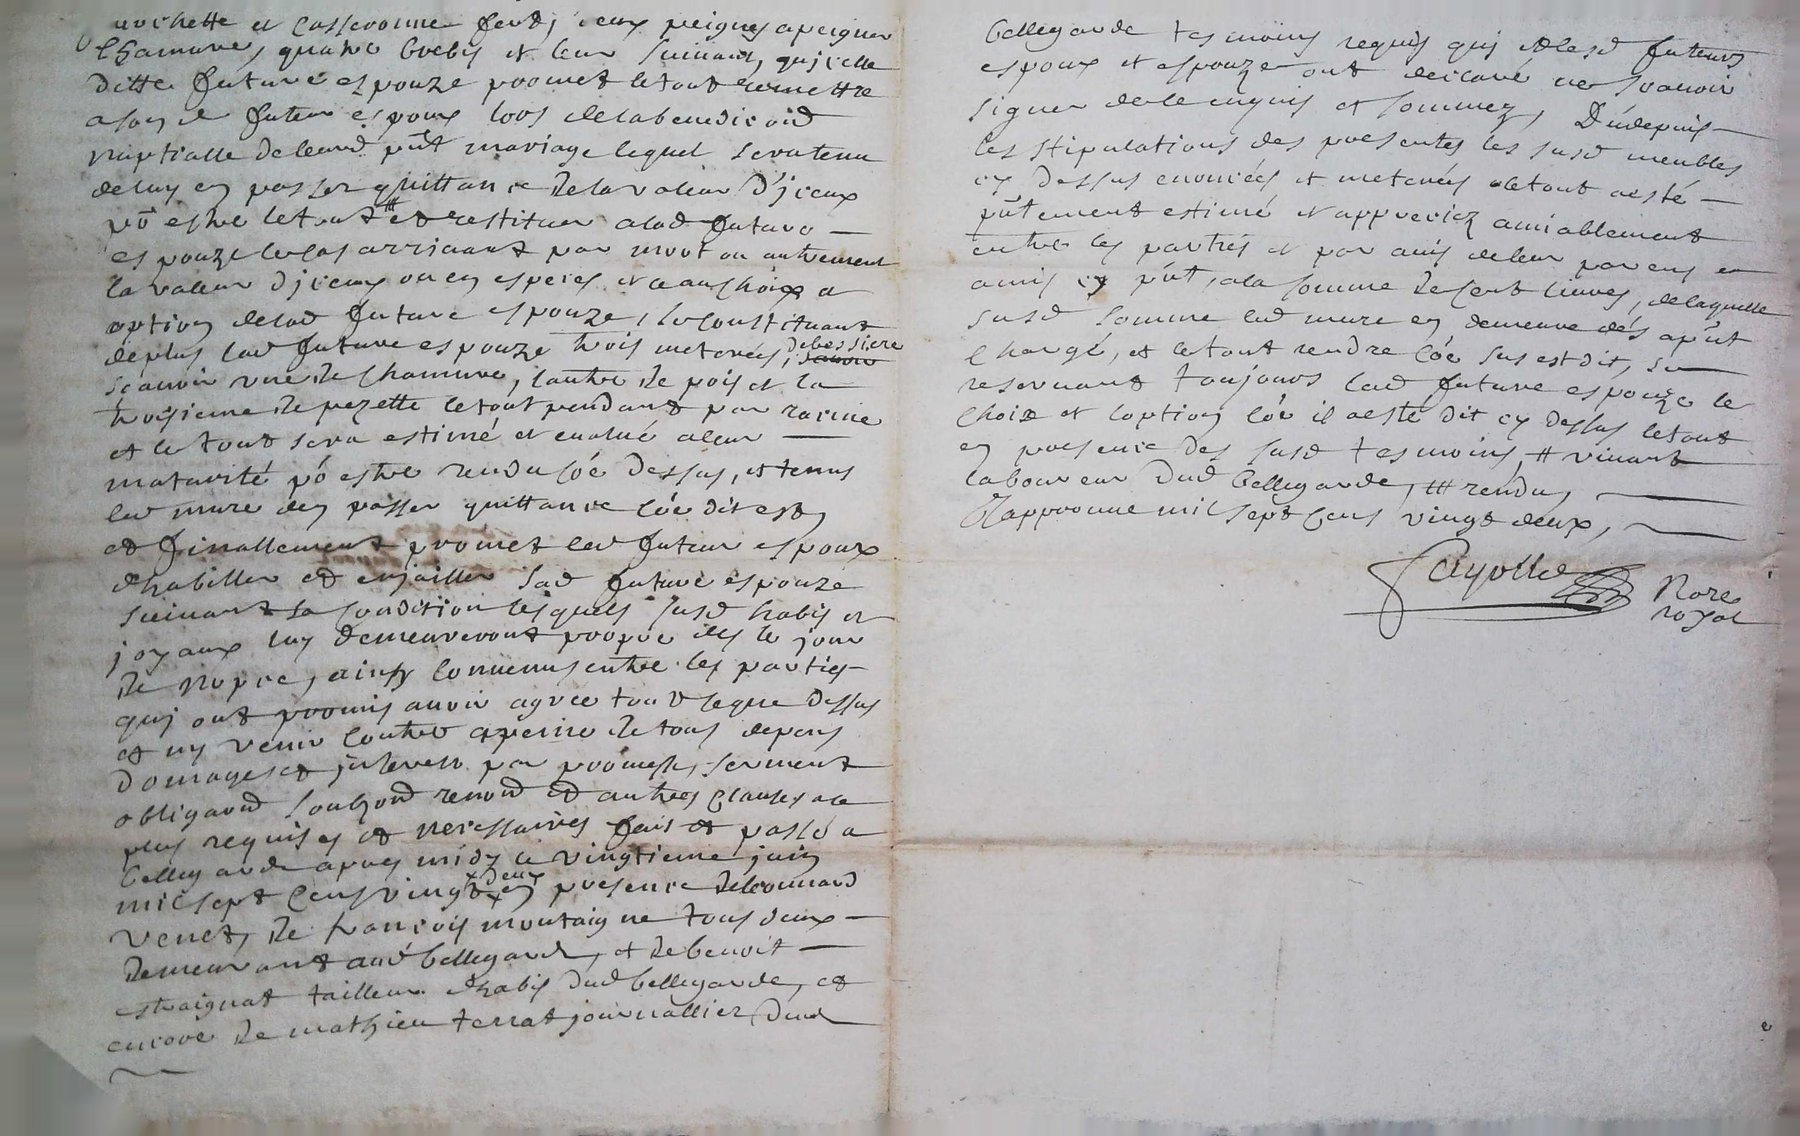 et casseronne fert, deux peignes a peigner
Chamure, quatre brebis et leur suivant, qu'jcelle
ditte future espouze promet letout remettre
a son d futeur espoux lors de la benedic oñd
nuptialle deleurd pñt mariage lequel sera tenu
de luy en passer quittance de la valeur d'jceux
põ estre letout # et restituer a lad future
espouze le cas arrivant par mort ou autrement
la valeur d'jceux ou en especes et ce au choix et
option de lad future espouze, se constituant
de plus lad future espouze trois meterées, debessiere
scavoir une de Chamure, lautre de pois et la
troisieme de pezette letout pendant par racine
et le tout sera estimé et evalué a leur
maturité põ estre rendu cõe dessus, et tenus
led mure den passer quittance cõe dit est,
et finallement promet led futeur espoux
dhabiller et enjailler sad future espouze
suivant sa condition lesquels susd habis et
joyaux luy demeureront propre des le jour
de nopce, ainsy convenus entre les parties
quj ont promis avoir agree tout ceque dessus
et ny venir contre a peine de tous depens
domages et jnterets par promesse, serment
obligaond soubzond renond et autres clauses a ce
plus requises et necessaires fait et passé a
bellegarde apres midy le vingtieme juin
mil sept cens vingt deux en presence de leonnard
venet, de francois montaigne tous deux
demeurant aud bellegarde, et de benoit
estraignat tailleur dhabis dud bellegarde, et
encore de mathieu terrat journallier dud
bellegarde tesmoins requis quj et lesd futeurs
espoux et espouze ont declaré ne scavoir
signer de ce enquis et sommez, Dudepuis
les stipulations des presentes les susd meubles
cy dessus enoncées et meterées letout aesté
pñtement estimé et appreciez amiablement
entre les parties et par avis de leur parens et
amis cy pñt, a la somme de cent livres, de laquelle
susd somme led mure en demeure dés apñt
chargé, et le tout rendre cõe sus est dit, se
reservant toujours lad future espouze le
choix et loption cõe il aesté dit cy dessus letout
en presence des susd tesmoins, # vivant
laboureur dud bellegarde, ## rendu,
Japprouve mil sept cens vingt deux,
Fayolle
Nore
royal